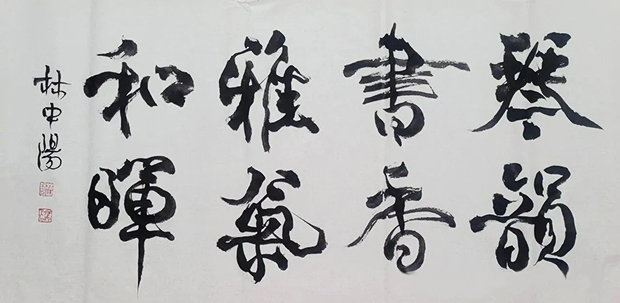 琴韻
書香
雅氣
和暉
林中陽